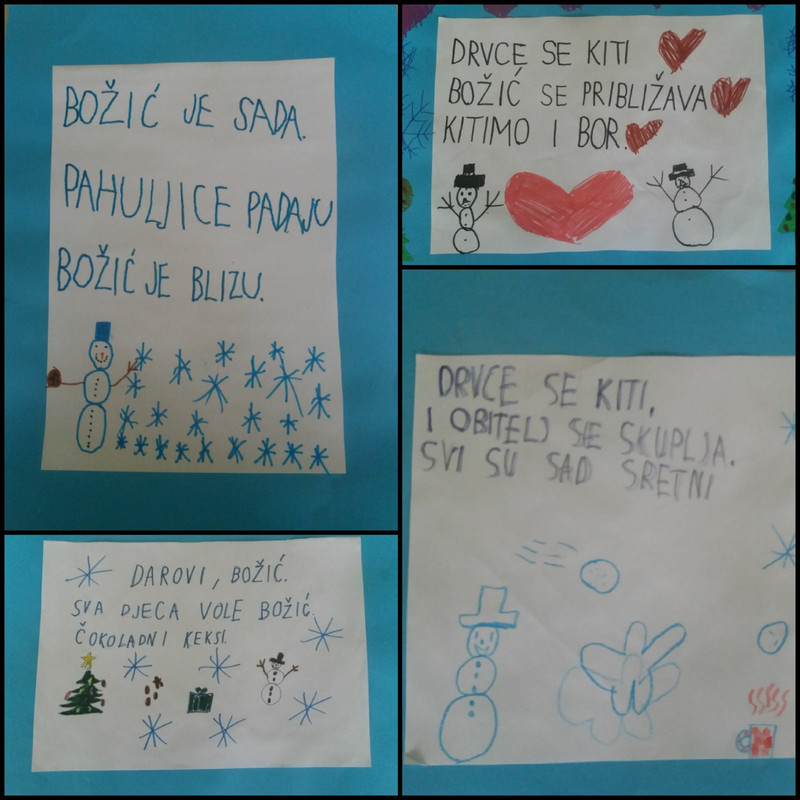 BOŽIĆ JE SADA.
PAHULJICE PADAJU
BOŽIĆ JE BLIZU.
DRVCE SE KITI
BOŽIĆ SE PRIBLIŽAVA
KITIMO I BOR.
DAROVI, BOŽIĆ.
SVA DJECA VOLE BOŽIĆ.
ČOKOLADNI KEKSI.
DRVCE SE KITI,
I OBITELJ SE SKUPLJA.
SVI SU SAD SRETNI